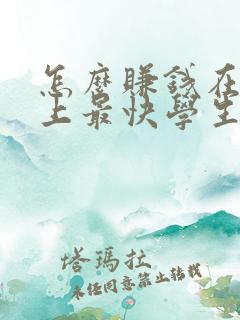 怎麼賺錢在
上最快學生
塔瑪拉
未經同意禁止轉載